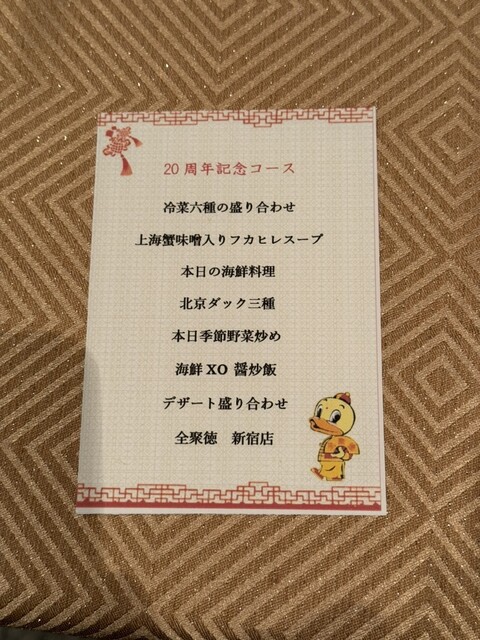 20 周年記念コース
冷菜六種の盛り合わせ
上海蟹味噌入りフカヒレスープ
本日の海鮮料理
北京ダック三種
本日季節野菜炒め
海鮮 XO 醤炒飯
デザート盛り合わせ
全聚徳　新宿店